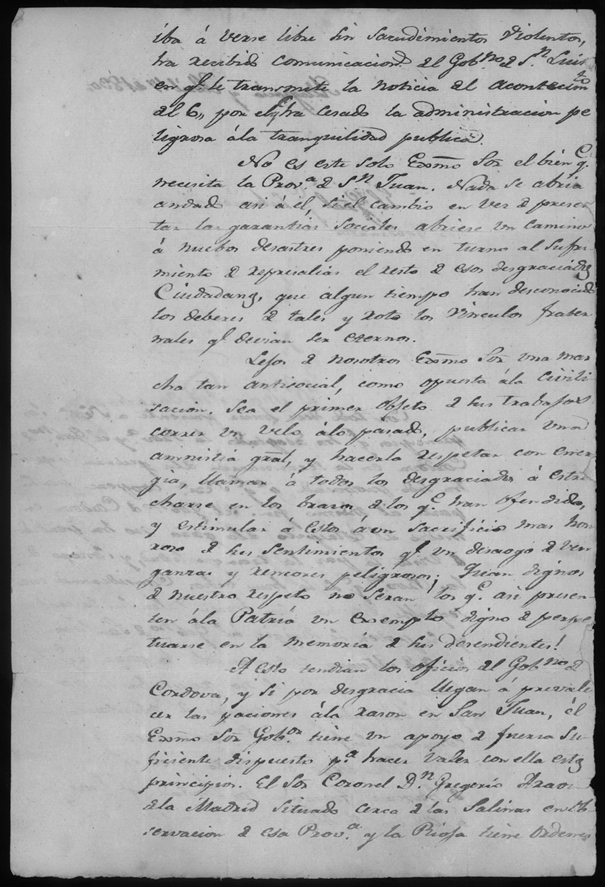 iba á verse libre sin sacudimientos violentos,
ha recibido comunicacion del Gob.no d S.n Luis
en q.e le transmite la noticia del acontecim.to
del 6,, por el q.e ha cesado la administracion pe
ligrosa á la tranquilidad publica.
No es este solo Exsmo Sor el bien q.e
necesita la Prov.a d S.n Juan. Nada se abria
andado asi á el, si el cambio en vez d presen
tar las garantias sociales abriese un camino
á nuebos desastres poniendo en turno al sufri
miento d represalias el resto d esos desgraciados
Ciudadanos, que algun tiempo han desconocido
los deberes d tales y roto los vinculos frater
nales q.e devian ser eternos.
Lejos d nosotros Exsmo Sor una mar
cha tan antisocial, como opuesta á la civili
sacion. Sea el primer objeto d sus trabajos
correr un velo á lo pasado, publicar una
amnistia gral, y hacerla respetar con ener
gia, llamar á todos los desgraciados á estre
charse en los brazos d los q.e han ofendido,
y estimular á estos á un sacrificio mas hon
roso d sus sentimientos q.e un desaogo d ven
ganzas y rencores peligrosos; ¡cuan dignos
d nuestro respeto no seran los q.e asi presen
ten á la Patria un exemplo digno d perpe
tuarse en la memoria d sus desendientes!
A esto tendian los oficios del Gob.no d
Cordova, y si por desgracia llegan á prevale
cer las paciones á la rason en San Juan, el
Exsmo Sor Gob.or tiene un apoyo d fuerza su
ficiente dispuesto p.a hacer valer con ella estos
principios. El Sor Coronel D.n Gregorio Araoz
d la Madrid situado cerca d las Salinas en ob
servacion d esa Prov.a y la Rioja tiene ordenes